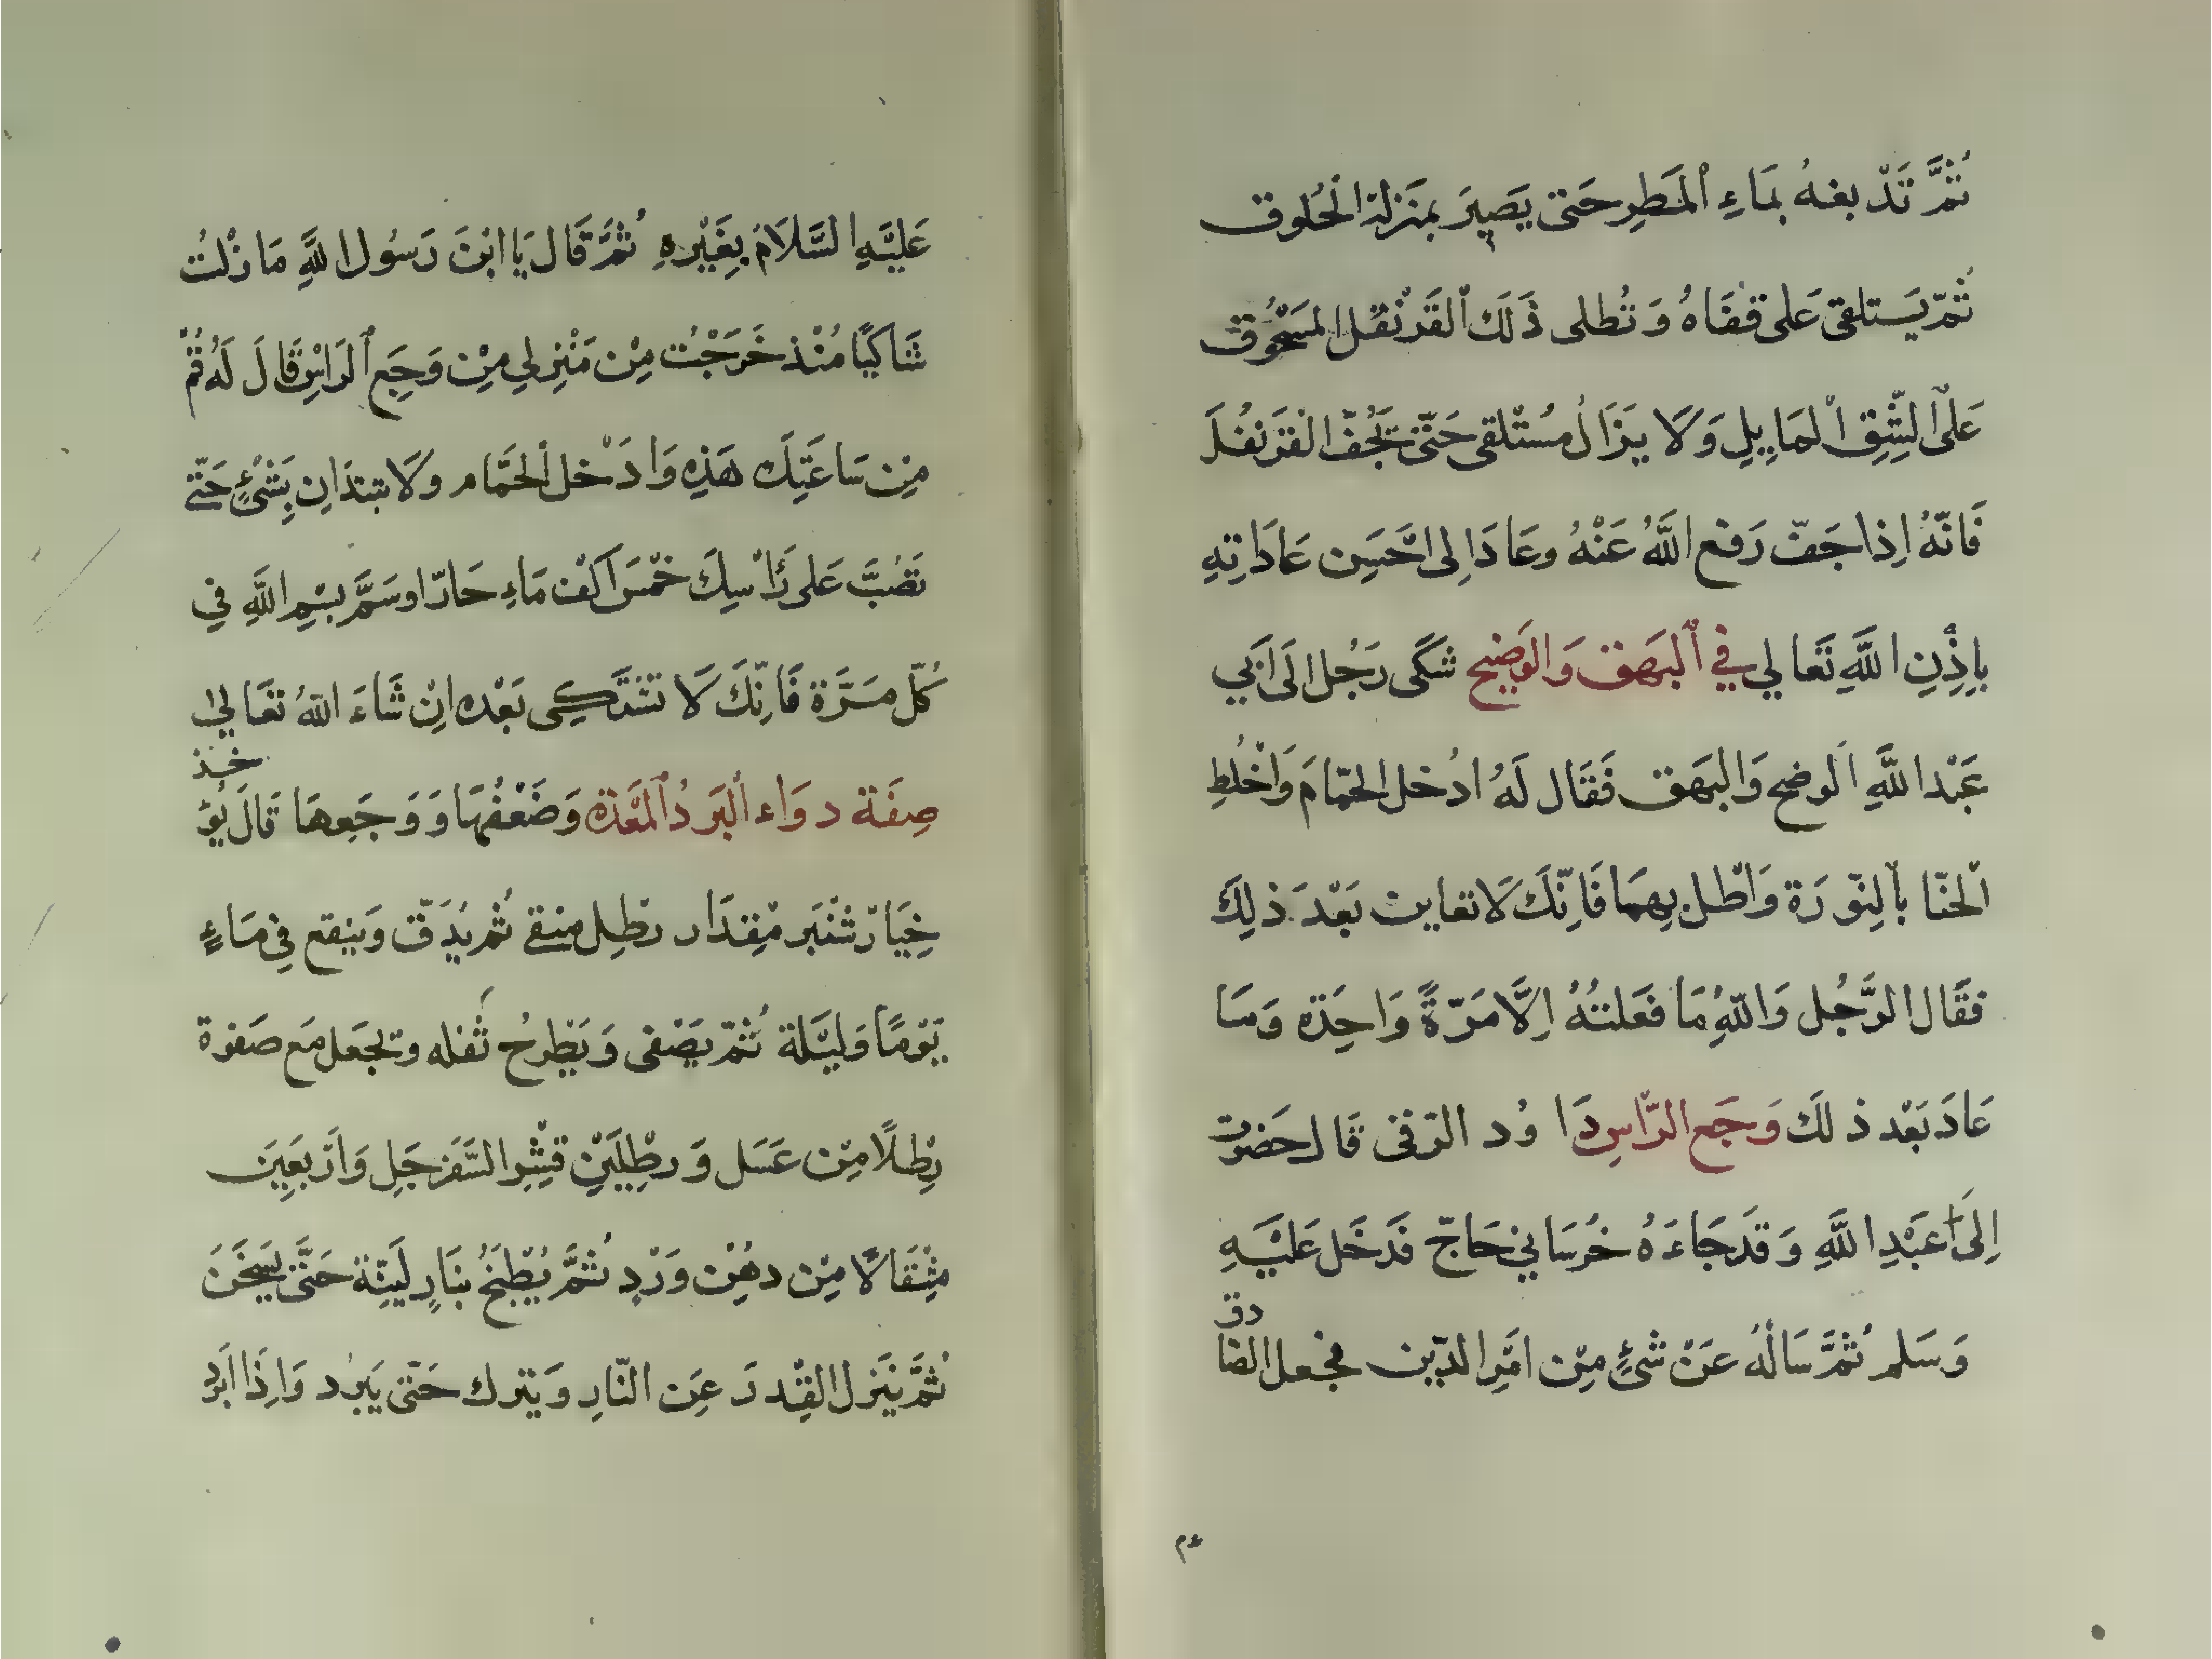 ثُمَّ تَدّبغهُ بمَاءِ ٱلمَطَرِ حَتى يَصِيرَ بمَنزلة الخُلوق
ثُمّ يَستلقى عَلى قفَاهُ وَتُطلى ذَلَك ٱلقَرَنْفُل المَسْحُوق
عَلىْ الشِّقِ الْمَايِلِ وَلَا يزَالُ مُسْتْلقى حَتّى يَجُفّ القرَنفُلَ
فَانّهُ اِذا جَفّ رَفع اللَّهُ عَنْهُ وعَادَ اِلى احَّسَن عَادَاتِهِ
بِاِذْنِ اللَّهِ تَعَالي في ٱلبَهَق وَالوَضِيح شَكَى رَجُل الَى اَبي
عَبْد اللَّهِ الَوضح وَالبَهَق فَقَال لَهُ ادُخل الحمّامَ وَاخْلُطِ
الْحنّا بالِنّورَة وَاطْل بِهمَا فَاِنّكَ لَا تعاين بَعْدَ ذلِكَ
فقَال الرَّجُل وَاللّهِ مَا فعَلتُهُ اِلَّا مَرّةً وَاحِدَة وَمَا
عَادَ بَعْد ذلَك وَجَع الرّاسِ دَاوُد الرّقى قَال حَضرت
اِلىَ اَعبْدِ اللَّهِ وَقدَ جَاءَهُ خُرَسَاني حَاجّ فَدَخَل عَلَيْهِ
وَسَلم ثُمَّ سَالَهُ عَنْ شئٍ مِّن امَرِ الدّين فجعل الصَا
دق
٤٣
عَليَّهِ السَّلَامَ بِغَيْرهِ ثُمَّ قَال يَا ابْنَ رَسُول اللَّهِ مَا زْلتُ
شَاكيًا مُنْذ خَرَجْت مِنْ مَنْزِلي مِنْ وَجَع ٱلرَاسْ قَالَ لَهُ قُمْ
مِن سَاعَتِكَ هَذِه وَادَخل الحَمَّام وَلَا تبتدَان بِشَئٍ حَتّى
تَصُبَّ عَلى رَاْسِكَ خمْسَ اَكُف مَاءِ حَارّا وسَمَّ بسْم اللَّهِ في
كُلّ مَرَّة فَاِنّكَ لَا تشْتَكِي بَعْده اِنْ شَاءَ اللّهُ تَعَالى
صِفَة دوَاء ٱلبَرَدُ ٱلمَعَدة وَضَعْفُهَا وَوَجَعِهَا قَالَ يُؤ
خذ
خِيَارْشَنْبَر مْقِدَار رطِل منقى ثُم يُدَقّ وَينقع في مَاءٍ
يَوْمًا وَليْلة ثُمّ يَصْفى وَيَطْرحُ ثُفله وتجَعَل مَع صَفوة
رِطْلًا مِنْ عَسَل وَرطْلِيَنْ قشْرِ السّفرجَلِ وَارْبَعيَن
مِثْقَالًا مِنْ دهُن وَرْدٍ ثُمَّ يُطْبَخُ بنَارٍ لَيّنِة حَتّى يَسخَنَ
ثُمَّ يَنزل القِدرَ عَن النّارِ وَيترك حَتّى يَبرُد وَاِذَا ابَردِ